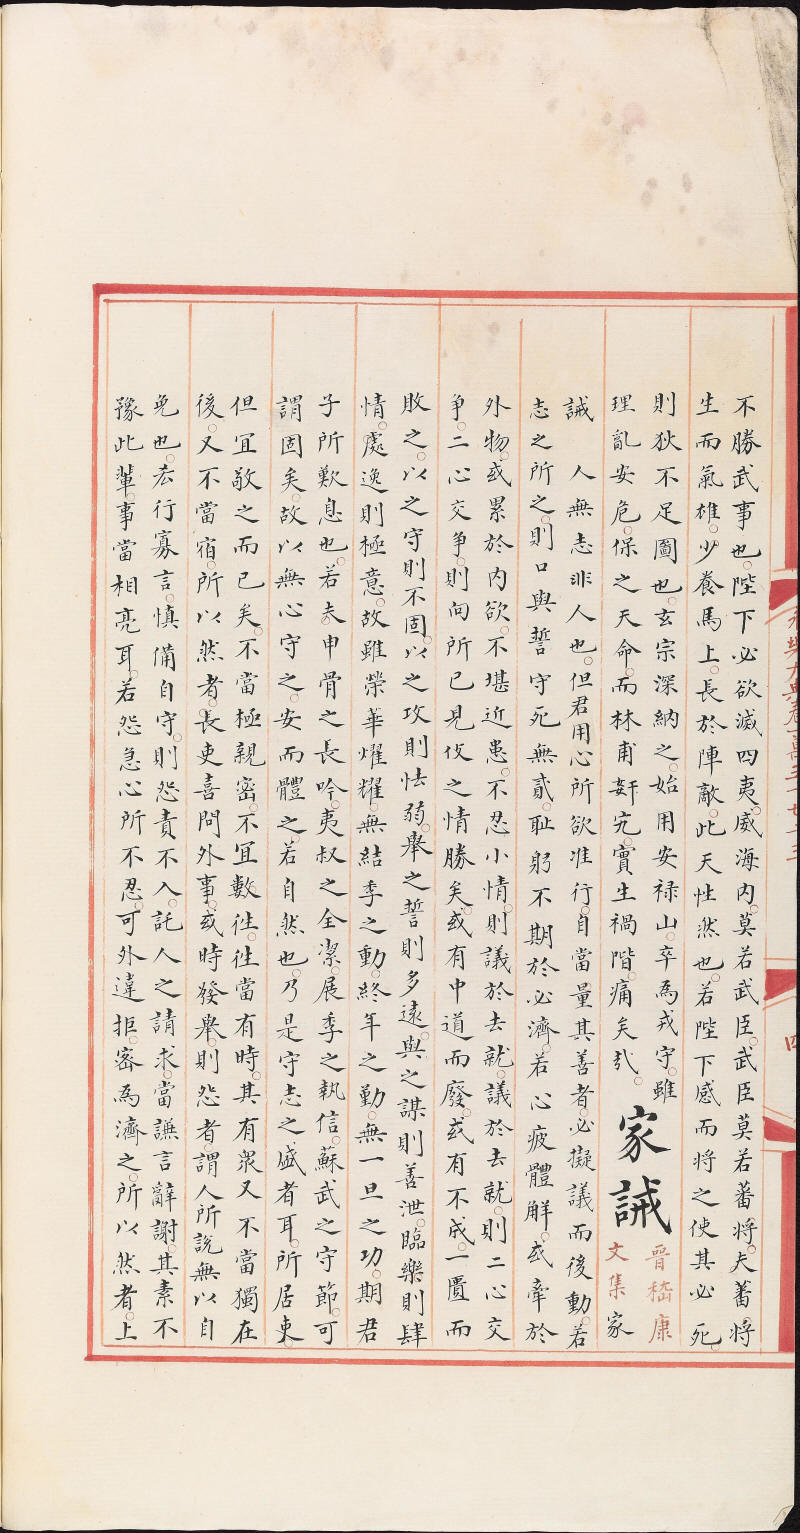 不勝武事也。陛下必欲滅四夷。威海内。莫若武臣。武臣莫若蕃將。夫蕃將
生而氣雄。少養馬上。長於陣敵。此天性然也。若陛下感而將之。使其必死。
則狄不足圖也。玄宗深納之。始用安禄山。卒為戎守。雖
理亂安危。保之天命。而林甫姧宄。實生禍階。痛矣㢤。
家誡
晉嵇康
文集 家
誡 人無志非人也。但君用心所欲准行。自當量其善者。必擬議而後動。若
志之所之。則口與誓守死無貳。耻躬不期於必濟。若心疲體解。或牽於
外物。或累於内欲。不堪近患。不忍小情。則議於去就。議於去就。則二心交
爭。二心交爭。則向所已見伇之情勝矣。或有中道而廢。或有不成。一匱而
敗之。以之守則不固。以之攻則怯弱。舉之誓則多遠。與之謀則善泄。臨樂則肆
情。處逸則極意。故雖榮華燿耀。無結季之動。終年之勤。無一旦之功。期君
子所歎息也。若夫申胥之長吟。夷叔之全潔。展季之執信。蘇武之守節。可
謂固矣。故以無心守之。安而體之。若自然也。乃是守志之盛者耳。所居吏。
但宜敬之而已矣。不當極親密。不宜數徃。徃當有時。其有衆又不當獨在
後。又不當宿。所以然者。長吏喜問外事。或時發舉。則怨者。謂人所説無以自
免也。宏行寡言。慎備自守。則怨責不入。託人之請求。當謙言辭謝。其素不
豫此輩。事當相亮耳。若怨急心所不忍。可外違拒。密為濟之。所以然者。上